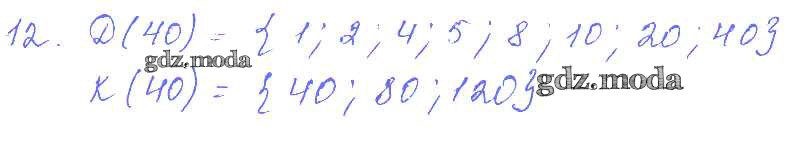 12. Д(40) = {1; 2; 4; 5; 8; 10; 20; 40}
gdz.moda
К(40) = {40; 80; 120}
gdz.moda